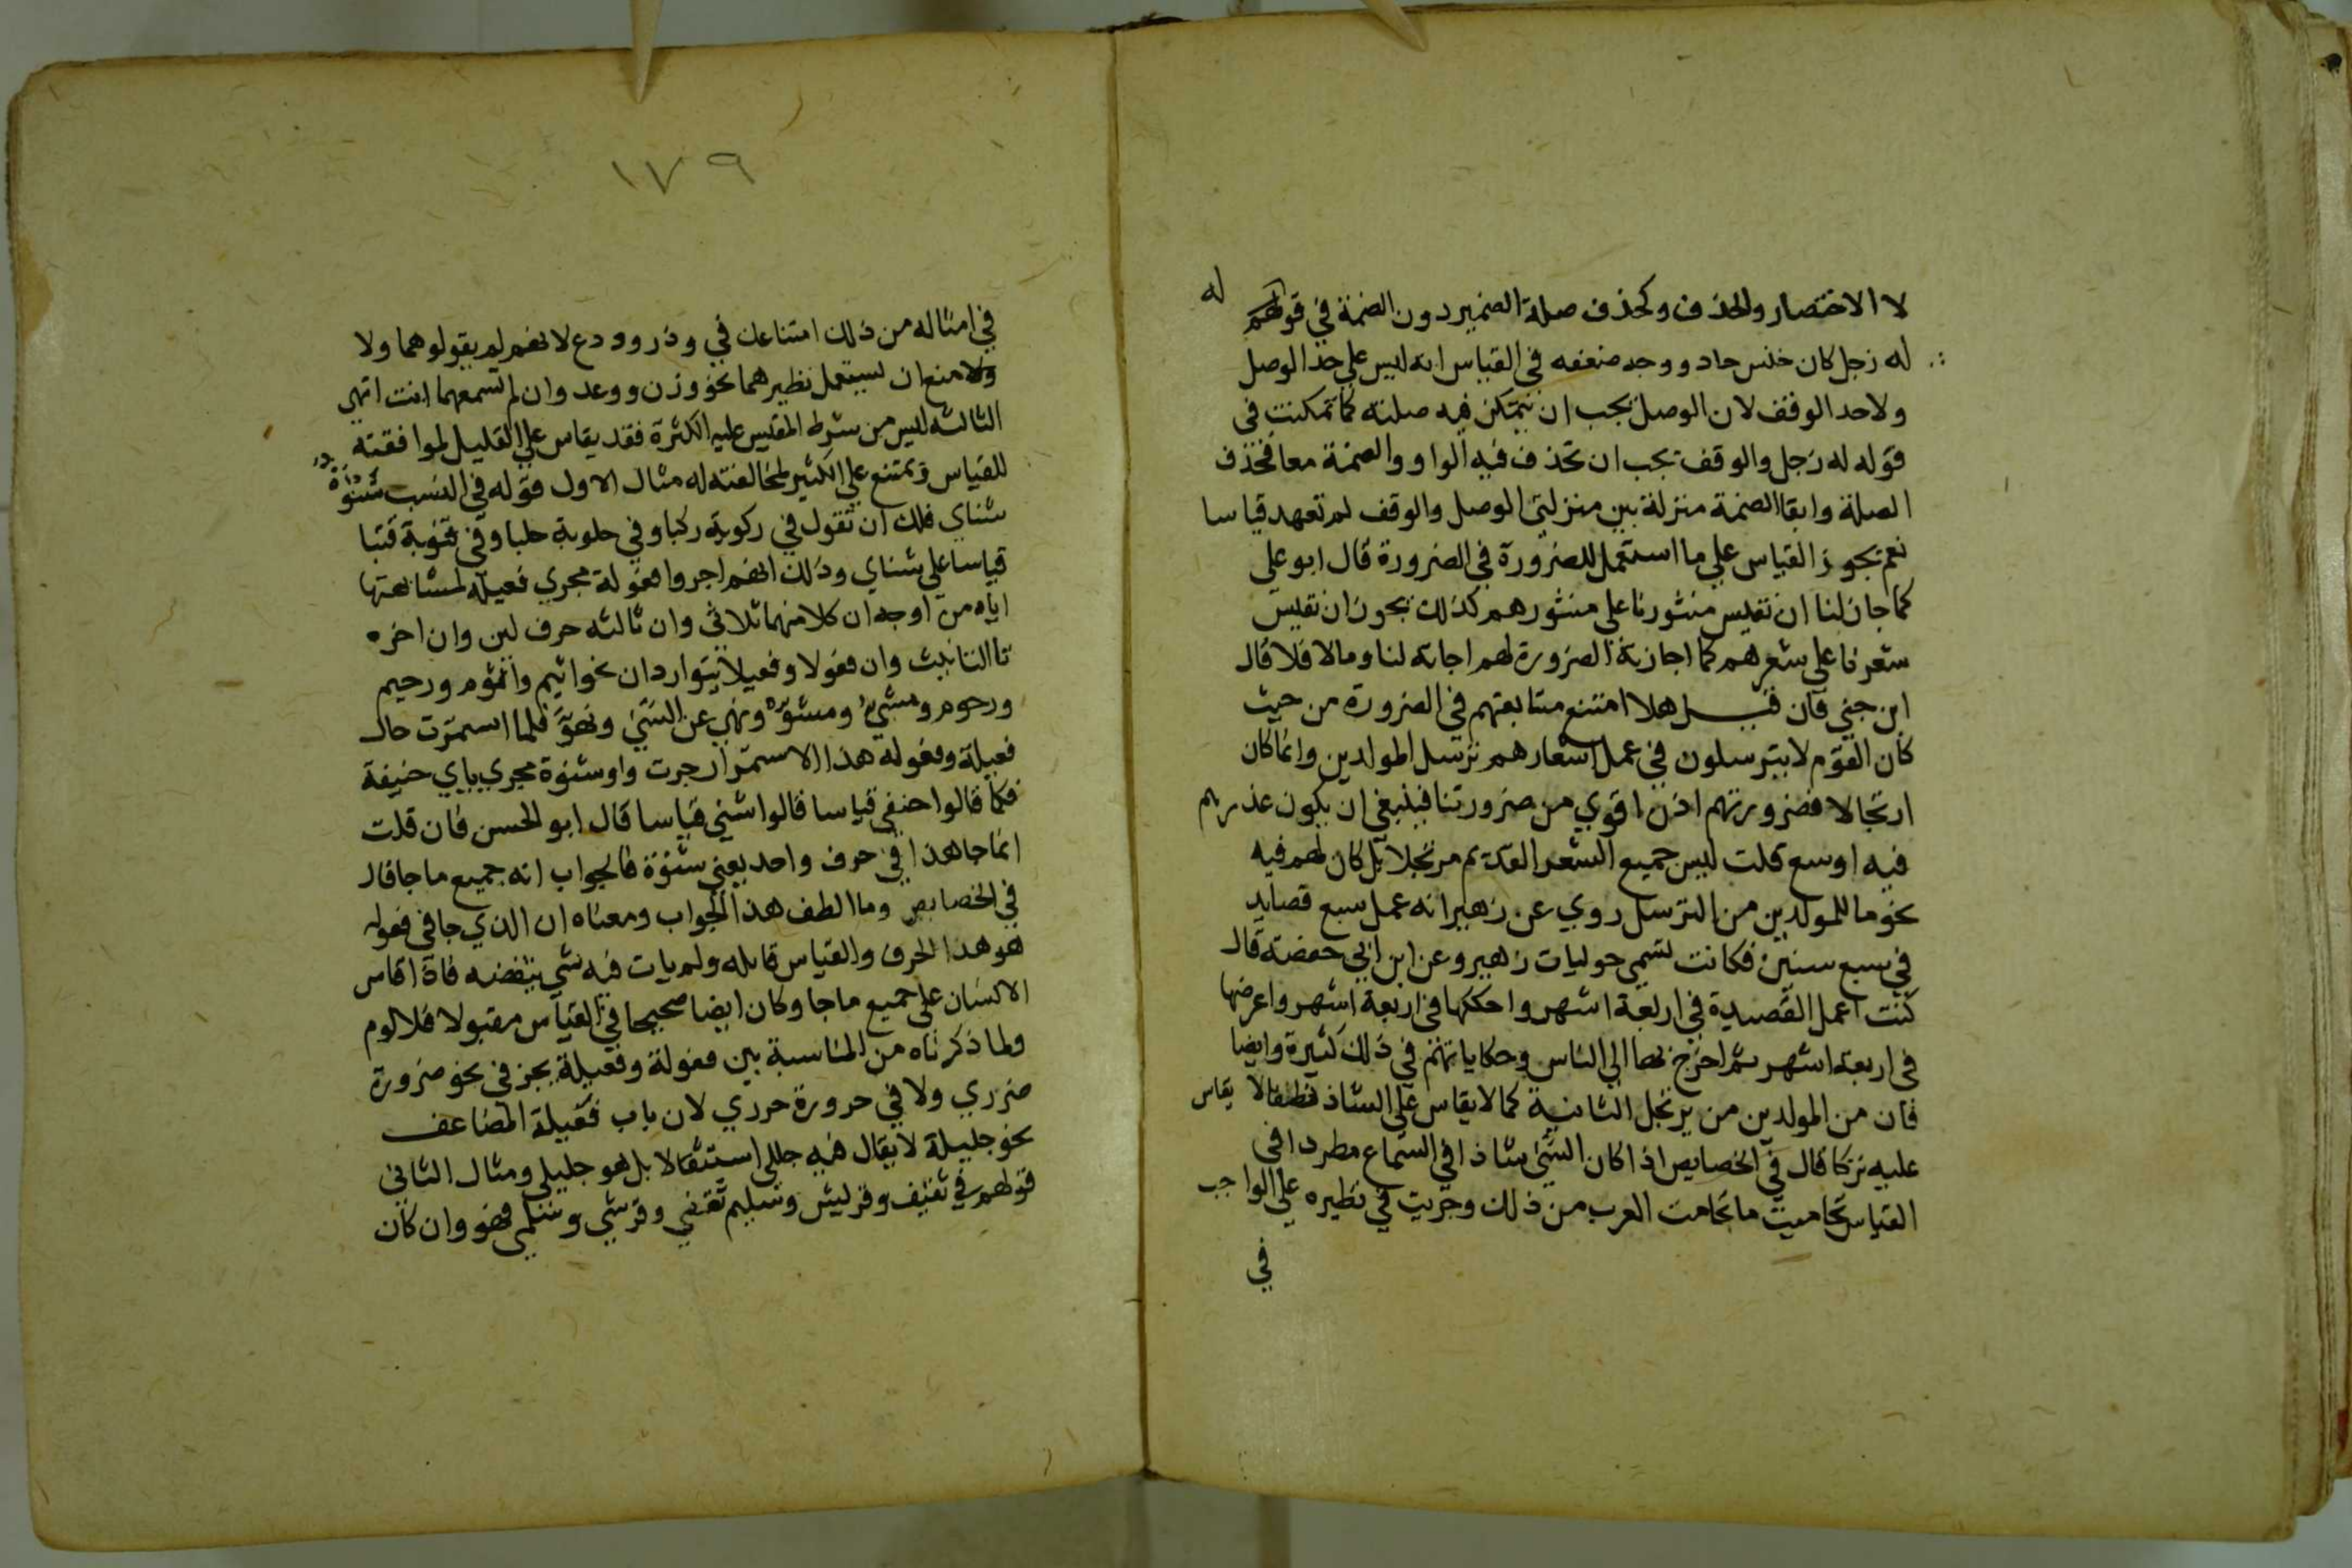 لا الاختصار والحذف وكحذف صلة الضمير دون الضمة في قولهم له
له زجل كان خلس حاد ووجه ضعفه في القياس انه ليس على حد الوصل
ولاحد الوقف لان الوصل يجب ان تتمكن فيه صلته كما تمكنت في
قوله له زجل والوقف يجب ان تحذف فيه الواو والضمة معا فحذف
الصلة وابقا الضمة منزلة بين منزلتي الوصل والوقف لم تعهد قياسا
نعم يجوز القياس علي ما استعمل للضرورة في الضرورة قال ابو علي
كما جاز لنا ان نقيس منثورنا علي منثورهم كذلك يجوز ان نقيس
شعرنا علي شعرهم كما اجازته الضرورة لهم اجازته لنا ومالا فلا قال
ابن جني فان قيل هلا امتنع متابعتهم في الضرورة من حيث
كان القوم لا يترسلون في عمل اشعارهم ترسل المولدين وانما كان
ارتجالا فضرورتهم اذن اقوي من ضرورتنا فينبغي ان يكون عذرهم
فيه اوسع قلت ليس جميع الشعر القديم مرتجلا بل كان لهم فيه
نحو ما للمولدين من الترسل روي عن زهير انه عمل سبع قصايد
في سبع سنين فكانت تسمي حوليات زهير وعن ابن ابي حفصة قال
كنت اعمل القصيدة في اربعة اشهر واحككها في اربعة اشهر واعرضها
في اربعة اشهر ثم اخرج بها الي الناس وحكاياتهم في ذلك كثيرة وايضا
فان من المولدين من يرتجل الثانية كما لا يقاس علي الشاذ نطقا لا يقاس
عليه تركا قال في الخصايص اذا كان الشي شاذا في السماع مطردا في
القياس تحاميت ما تحامت العرب من ذلك وجريت في نظيره علي الواجب
في
١٧٩
في امثاله من ذلك امتناعك في وذر وودع لانهم لم يقولوهما ولا
ولا منع ان تستعمل نظيرهما نحو وزن ووعد وان لم تسمعهما انت انتهى
الثالثه ليس من شرط المقيس عليه الكثرة فقد يقاس علي القليل لموافقته
للقياس ويمتنع علي الكثير لمخالفته له مثال الاول قوله في النسب شنوة
شناي فلك ان تقول في ركوبة ركبا وفي حلوبة حلبا وفي قتوبة قتبا
قياسا علي شناي وذلك انهم اجروا فعولة مجري فعيلة لمشابهتها
اياه من اوجه ان كلا منهما ثلاثي وان ثالثه حرف لين وان اخره
تا التانيث وان فعولا وفعيلا يتواردان نحو اثيم واثوم ورحيم
ورحوم ومشي ومشو ونهي عن الشي ونهو فلما استمرت حال
فعيلة وفعوله هذا الاستمرار جرت واو شنوة مجري ياي حنيفة
فكما قالوا حنفي قياسا قالوا شني قياسا قال ابو الحسن فان قلت
انما جا هذا في حرف واحد يعني شنوة فالجواب انه جميع ما جا قال
في الخصايص وما الطف هذا الجواب ومعناه ان الذي جا في فعوله
هو هذا الحرف والقياس قابله ولم يات فيه شي ينقضه فاذا قاس
الانسان علي جميع ما جا وكان ايضا صحيحا في القياس مقبولا فلا لوم
ولما ذكرناه من المناسبة بين فعولة وفعيلة لم يجز في نحو ضرورة
ضرري ولا في حرورة حرري لان باب فعيلة المضاعف
نحو جليلة لا يقال فيه جللي استثقالا بل هو جليلي ومثال الثاني
قولهم في ثقيف وقريش وسليم ثقفي وقرشي وسلمي فهو وان كان